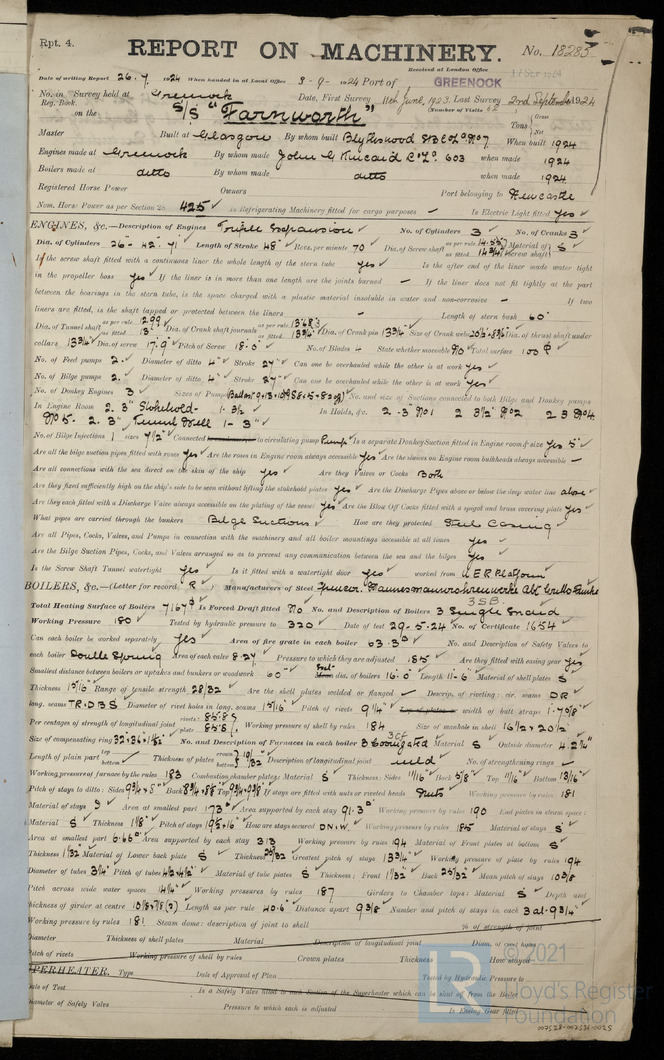 Rpt. 4.
REPORT ON MACHINERY.
No. 18285
Received at London Office
Date of writing Report 26. 7. 1924 When handed in at Local Office 3-9-1924 Port of GREENOCK
No. in Reg. Book. Survey held at Greenock Date, First Survey 11th June, 1923. Last Survey 2nd September 1924
on the S/S "Farnworth" (Number of Visits
Tons Gross Net
Master Built at Glasgow By whom built Blythswood SB Co Ld No 7 When built 1924
Engines made at Greenock By whom made John G Kincaid & Co Ld. 603 when made 1924
Boilers made at ditto By whom made ditto when made 1924
Registered Horse Power Owners Port belonging to Newcastle
Nom. Horse Power as per Section 28 425 Is Refrigerating Machinery fitted for cargo purposes — Is Electric Light fitted yes
ENGINES, &c.—Description of Engines Triple Expansion No. of Cylinders 3 No. of Cranks 3
Dia. of Cylinders 26"- 42"- 71" Length of Stroke 48" Revs. per minute 70 Dia. of Screw shaft as per rule as fitted 14 3/4" Material of screw shaft S
If the screw shaft fitted with a continuous liner the whole length of the stern tube yes Is the after end of the liner made water tight
in the propeller boss yes If the liner is in more than one length are the joints burned — If the liner does not fit tightly at the part
between the bearings in the stern tube, is the space charged with a plastic material insoluble in water and non-corrosive — If two
liners are fitted, is the shaft lapped or protected between the liners — Length of stern bush 60"
Dia. of Tunnel shaft as per rule 12.99 as fitted 13" Dia. of Crank shaft journals as per rule 13.68 as fitted 13 3/4" Dia. of Crank pin 13 3/4" Size of Crank webs Dia. of thrust shaft under
collars 13 3/4" Dia. of screw 17'.9" Pitch of Screw 18'.0" No. of Blades 4 State whether moveable No Total surface 100
No. of Feed pumps 2. Diameter of ditto 4" Stroke 27" Can one be overhauled while the other is at work yes
No. of Bilge pumps 2. Diameter of ditto 4" Stroke 27" Can one be overhauled while the other is at work yes
No. of Donkey Engines 3 Sizes of Pumps No. and size of Suctions connected to both Bilge and Donkey pumps
In Engine Room 2. 3" Stokehold- 1- 3 1/2 In Holds, &c. 2 -3" No 1 2 3 1/2" No 2 2 3" No 4.
No 5. 2. 3" Tunnel Well 1- 3"
No. of Bilge Injections 1 sizes 7 1/2" Connected to circulating pump Pump Is a separate Donkey Suction fitted in Engine room & size yes 5"
Are all the bilge suction pipes fitted with roses yes Are the roses in Engine room always accessible yes Are the sluices on Engine room bulkheads always accessible —
Are all connections with the sea direct on the skin of the ship yes Are they Valves or Cocks Both
Are they fixed sufficiently high on the ship's side to be seen without lifting the stokehold plates yes Are the Discharge Pipes above or below the deep water line above
Are they each fitted with a Discharge Valve always accessible on the plating of the vessel yes Are the Blow Off Cocks fitted with a spigot and brass covering plate yes
What pipes are carried through the bunkers Bilge Suctions How are they protected Steel Casing
Are all Pipes, Cocks, Valves, and Pumps in connection with the machinery and all boiler mountings accessible at all times yes
Are the Bilge Suction Pipes, Cocks, and Valves arranged so as to prevent any communication between the sea and the bilges yes
Is the Screw Shaft Tunnel watertight yes Is it fitted with a watertight door yes worked from U E R Platform
BOILERS, &c.—(Letter for record R) Manufacturers of Steel
3 S.B.
Total Heating Surface of Boilers 7167 Is Forced Draft fitted No No. and Description of Boilers 3 Single Ended
Working Pressure 180 Tested by hydraulic pressure to 320 Date of test 29-5-24 No. of Certificate 1654
Can each boiler be worked separately yes Area of fire grate in each boiler 63.3 No. and Description of Safety Valves to
each boiler Double Spring Area of each valve 8.27 Pressure to which they are adjusted 185 Are they fitted with easing gear yes
Smallest distance between boilers or uptakes and bunkers or woodwork 60" dia. of boilers 16'.0" Length 11'-6" Material of shell plates S
Thickness 1 5/16 Range of tensile strength 28/32 Are the shell plates welded or flanged — Descrip. of riveting: cir. seams DR
long. seams TR.DBS Diameter of rivet holes in long. seams 1 5/16" Pitch of rivets 9 1/4" width of butt straps
Per centages of strength of longitudinal joint rivets: 85.8 plate 85.8 Working pressure of shell by rules 184 Size of manhole in shell 16 1/2 x 20 1/2
Size of compensating ring No. and Description of Furnaces in each boiler 3 Corrugated Material S Outside diameter
Length of plain part top bottom Thickness of plates crown bottom Description of longitudinal joint weld No. of strengthening rings —
Working pressure of furnace by the rules 183 Combustion chamber plates: Material S Thickness: Sides 11/16 Back 5/8" Top 11/16" Bottom 13/16"
Pitch of stays to ditto: Sides Back Top If stays are fitted with nuts or riveted heads Nuts Working pressure by rules 181
Material of stays S Area at smallest part 1.73 Area supported by each stay 91.3 Working pressure by rules 190 End plates in steam space:
Material S Thickness 1 1/8" Pitch of stays How are stays secured DN.W Working pressure by rules 185 Material of stays S
Area at smallest part 6.66 Area supported by each stay 313 Working pressure by rules 194 Material of Front plates at bottom S
Thickness 1 1/32" Material of Lower back plate S Thickness Greatest pitch of stays 13 3/4" Working pressure of plate by rules 194
Diameter of tubes 3 1/4" Pitch of tubes Material of tube plates S Thickness: Front 1 1/32" Back 25/32" Mean pitch of stays
Pitch across wide water spaces 14 1/4" Working pressures by rules 187 Girders to Chamber tops: Material S Depth and
thickness of girder at centre Length as per rule 40.6" Distance apart 9 3/8 Number and pitch of stays in each 3 at-9 3/4"
Working pressure by rules 181 Steam dome: description of joint to shell % of strength of joint
Diameter Thickness of shell plates Material Description of longitudinal joint Diam. of rivet holes
Pitch of rivets Working pressure of shell by rules Crown plates Thickness How stayed
SUPERHEATER. Type Date of Approval of Plan Tested by Hydraulic Pressure to
Date of Test Is a Safety Valve fitted to each Section of the Superheater which can be shut off from the Boiler
Diameter of Safety Valve Pressure to which each is adjusted Is Easing Gear fitted
© 2021
Lloyd's Register
Foundation